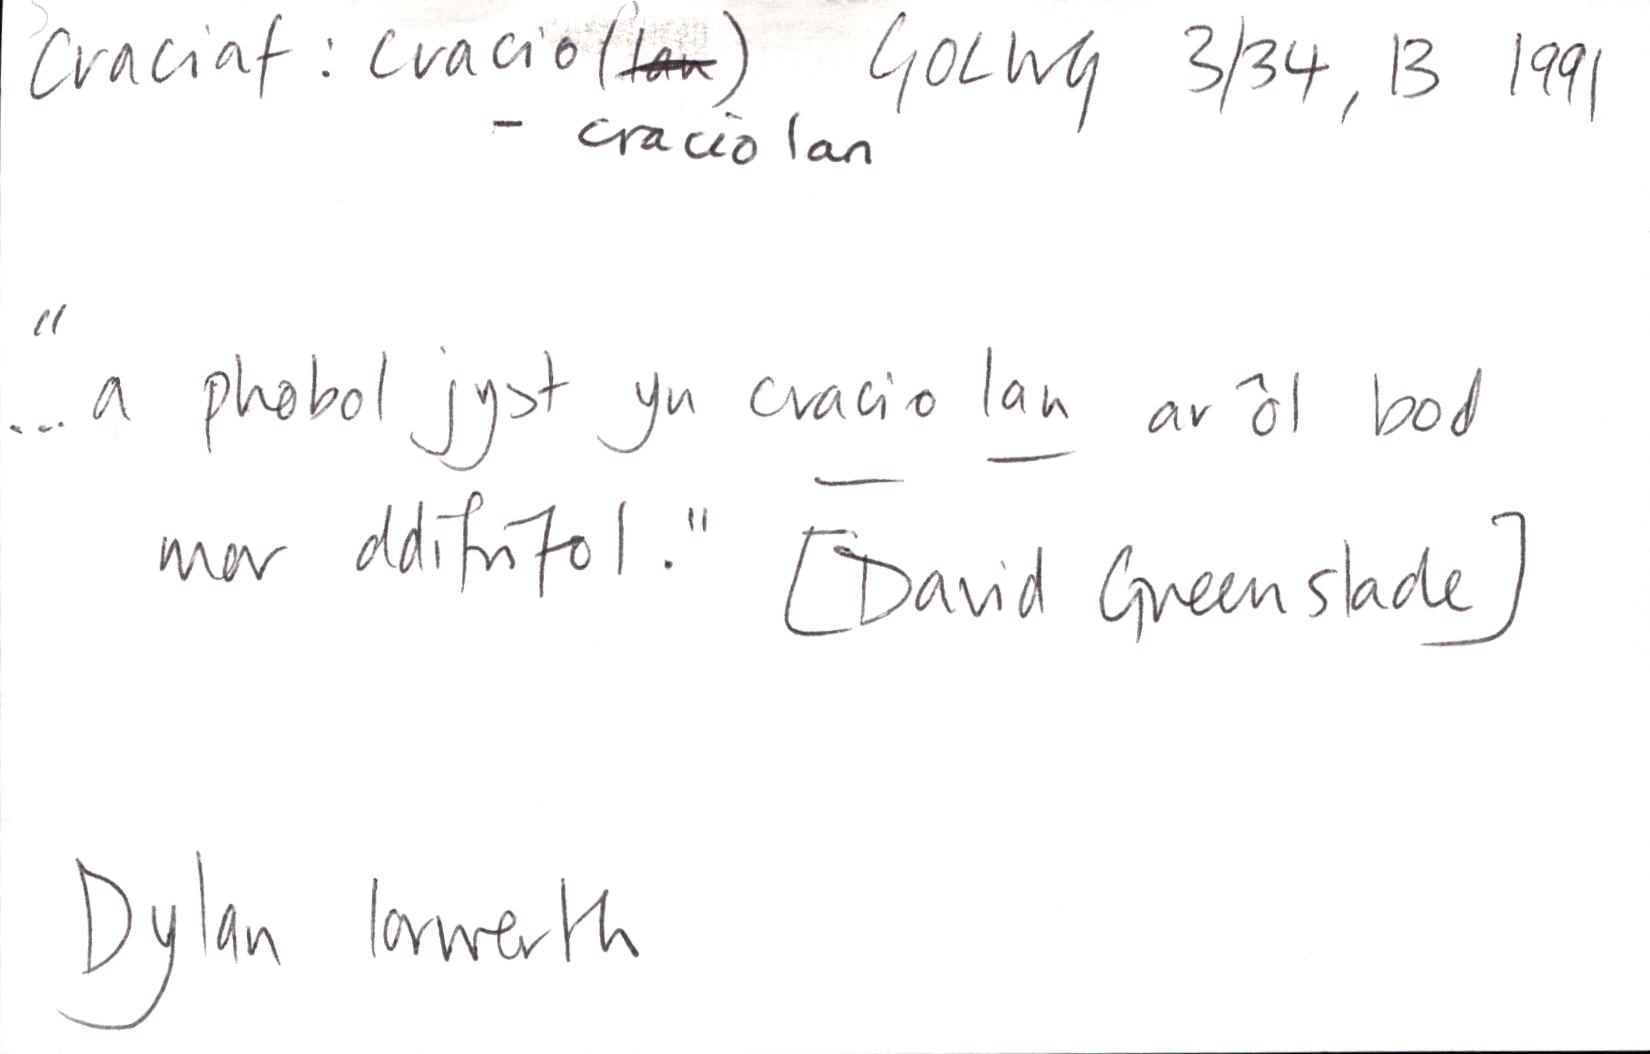 Craciaf : cracio (lan) GOLWG 3/34, 13 1991
- cracio lan
"
... a phobol jyst yn cracio lan ar ôl bod
mor ddifrifol." [David Greenslade]
Dylan Iorwerth